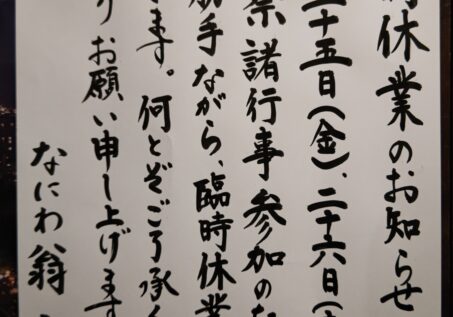 休業のお知らせ
二十五日(金)、二十六日(
祭諸行事参加のた
勝手ながら、臨時休業
ます。何とぞご了承く
お願い申し上げます
なにわ翁